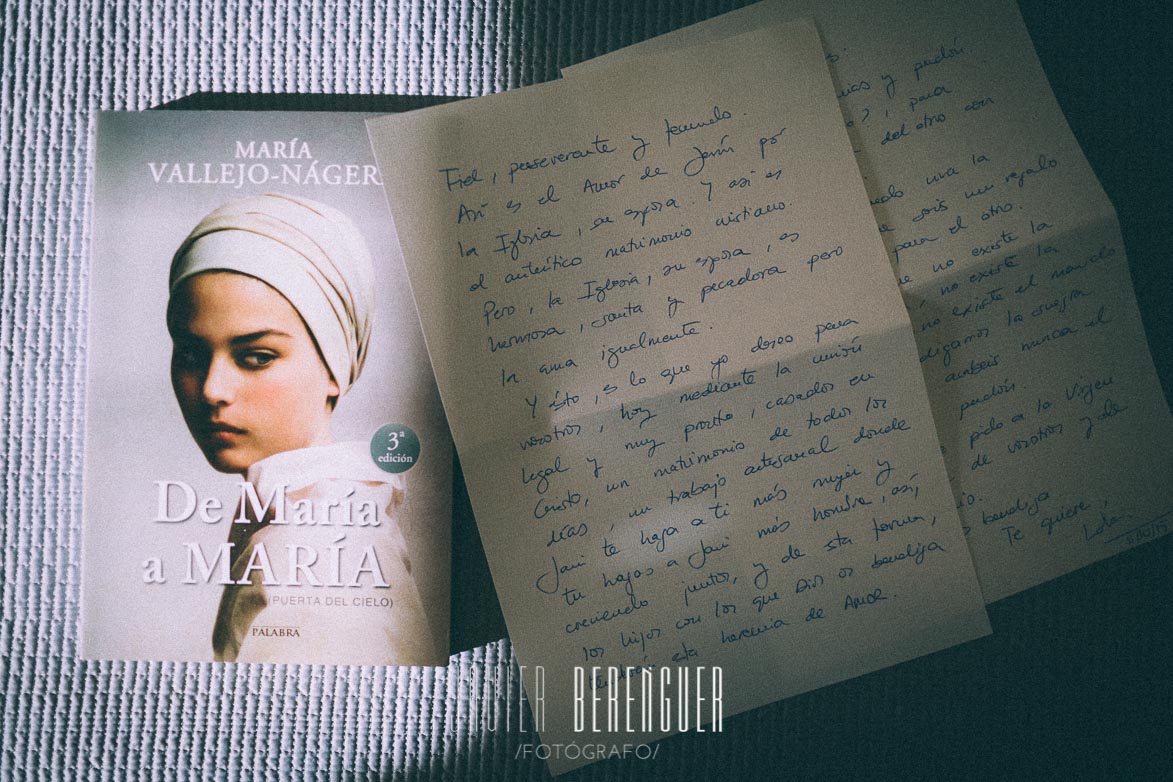 MARÍA
VALLEJO-NÁGER
3ª
edición
De María
a MARÍA
(PUERTA DEL CIELO)
PALABRA
Fiel, perseverante y fecundo.
Así es el Amor de Jesús por
la Iglesia, su esposa. Y así es
el auténtico matrimonio cristiano.
Pero, la Iglesia, su esposa, es
hermosa, santa y pecadora pero
la ama igualmente.
Y ésto, es lo que yo deseo para
vosotros, hoy mediante la unión
legal y muy pronto, casados en
Cristo, un matrimonio de todos los
días, un trabajo artesanal donde
Javi te haga a ti más mujer y
tu hagas a Javi más hombre, así,
creciendo juntos, y de esta forma,
los hijos con los que Dios os bendiga
esta herencia de Amor.
y perdón
para
del otro
la
sois un regalo
para el otro.
no existe la
no existe la
no existe el marido
digamos la suegra
nunca el
perdón.
pido a la Virgen
de vosotros y de
bendiga
Te quiere,
BERENGUER
/FOTÓGRAFO/